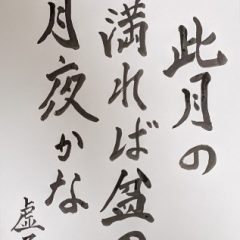 此月の
満れば盆の
月夜かな
虚